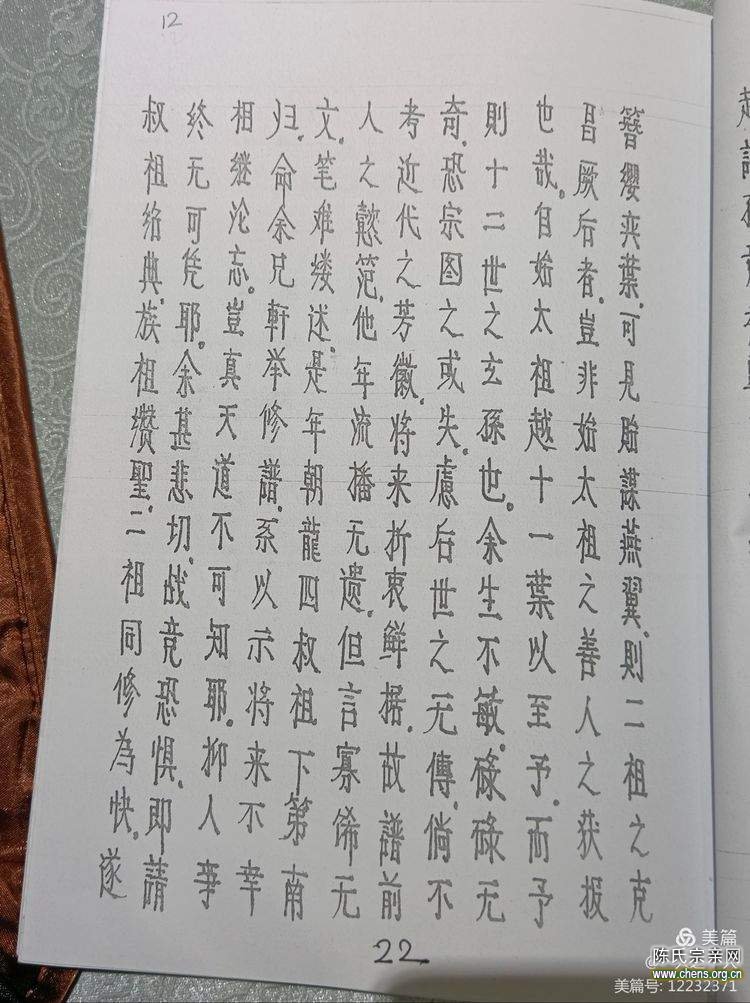 12
簪缨奕葉、可見貽謀燕翼、則二祖之克
昌厥后者、豈非始太祖之善人之获报
也哉。自始太祖越十一葉以至予、而予
則十二世之玄孫也。余生不敏、碌碌无
奇、恐宗图之或失、慮后世之无傳、倘不
考近代之芳徽、将来折衷鲜据、故譜前
人之懿范、他年流播无遗、但言寡俙无
文、笔难缕述、是年朝龍四叔祖下第南
归、命余兄軒举修譜、系以示将来不幸
相继沦忘。豈真天道不可知耶。抑人事
终无可凭耶。余甚悲切、战竞恐惧、即請
叔祖络典、族祖缵聖、二祖同修為快、遂
22
美篇
陈氏宗亲网
www.chens.org.cn
美篇号: 12232371